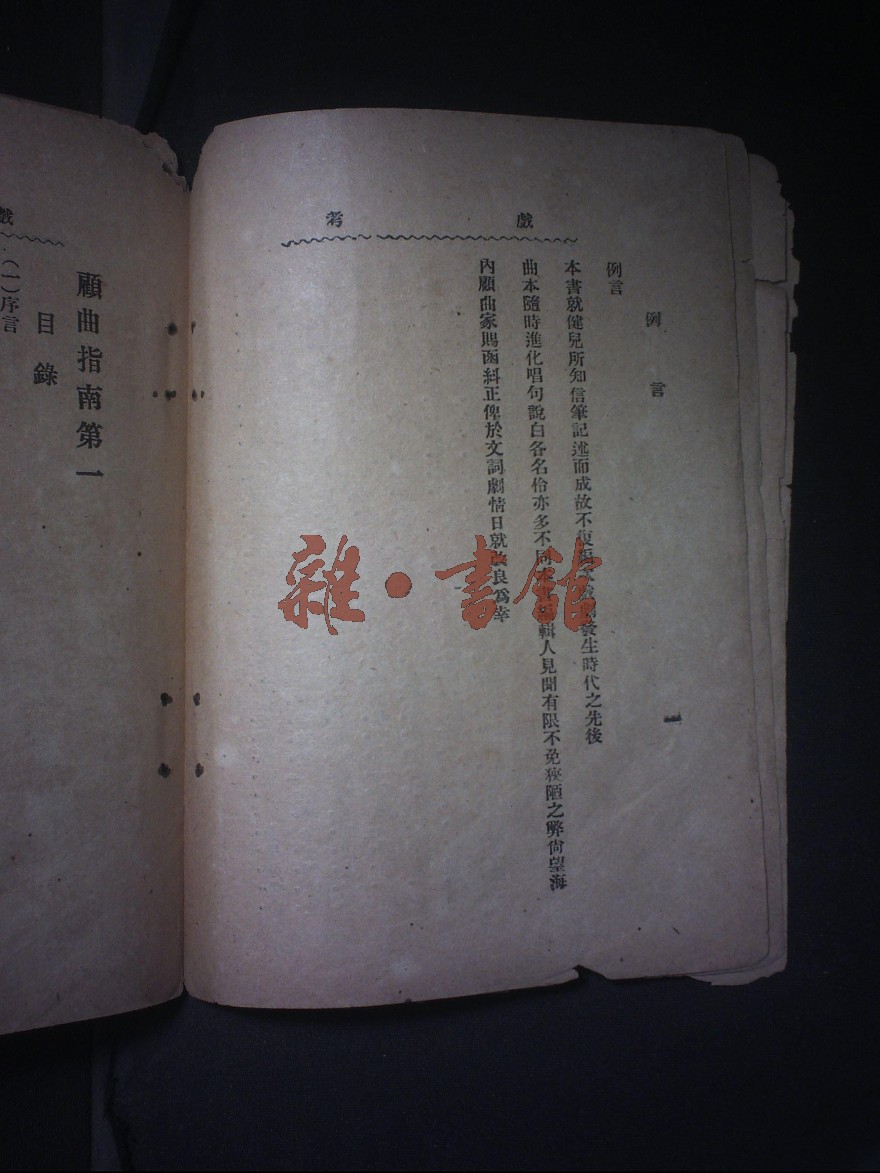 戲考
例言
一
例言
本書就健兒所知信筆記述而成故不復 發生時代之先後
曲本隨時進化唱句說白各名伶亦多不同 輯人見聞有限不免狹陋之弊尙望海
內顧曲家賜函糾正俾於文詞劇情日就 良爲幸
戲
顧曲指南第一
目錄
(一)序言
雜·書館